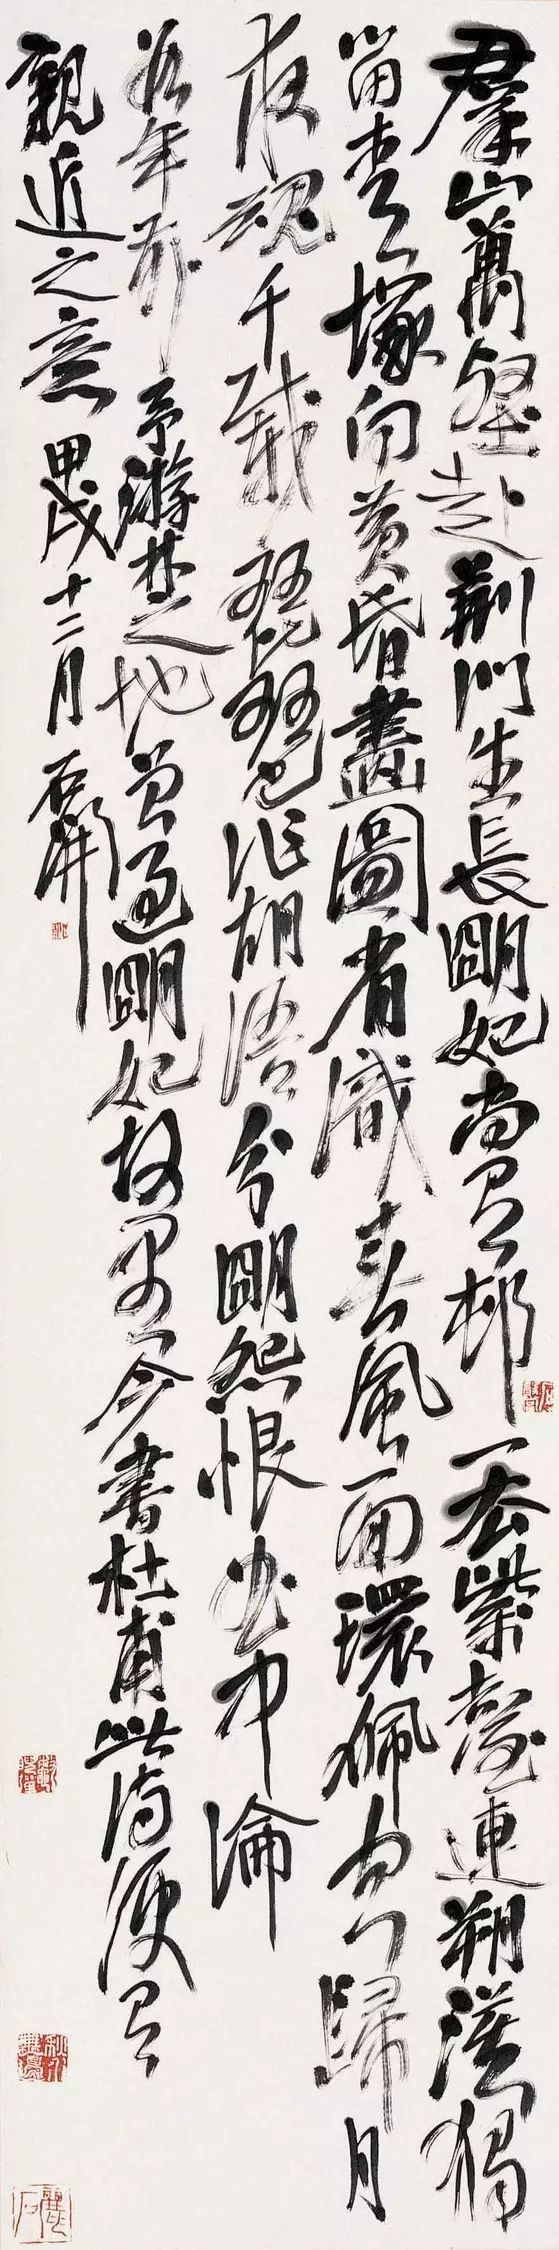 羣山萬壑赴荆門生長朙妃尚有邨一去紫臺連朔漠獨
留青塚向黄昏畫圖省識春風面環佩空歸月
夜魂千載琵琶作胡語分朙怨恨曲中論
數年前予游楚之地曾過朙妃故里今書杜甫此诗便有
親近之意甲戌十二月石開